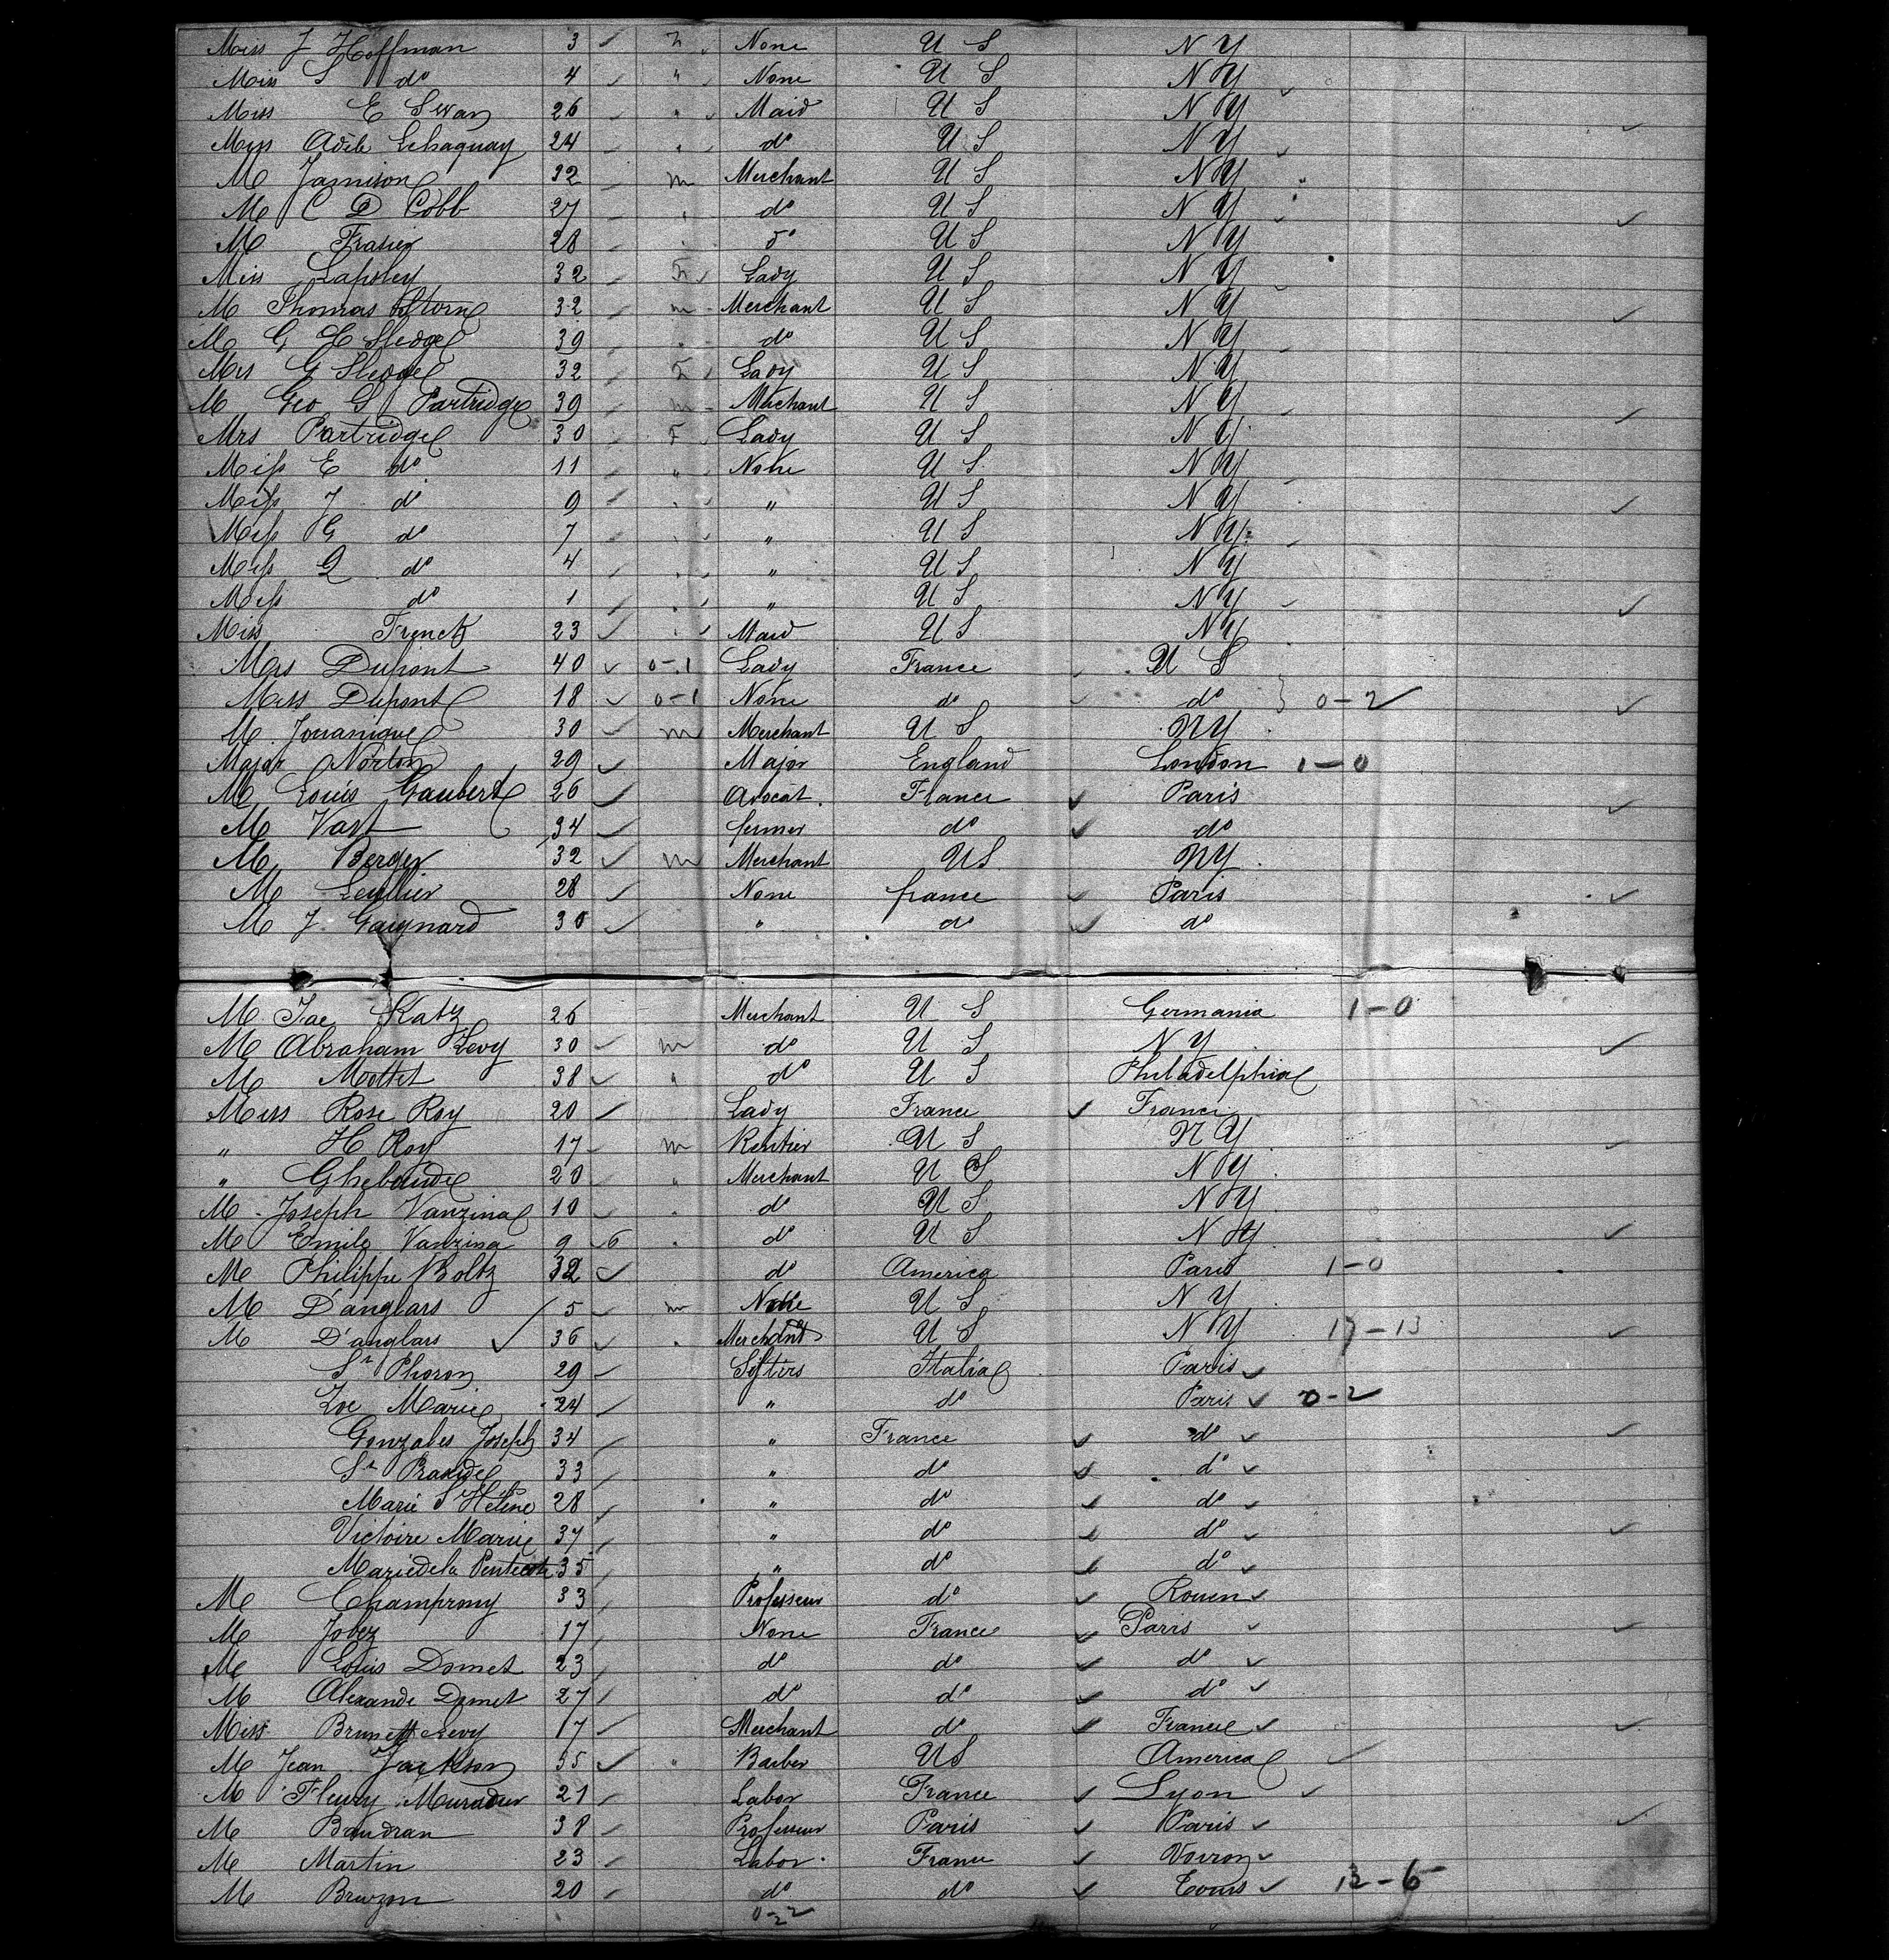 Miss J Hoffman 3 None U S N Y
Miss S do 4 " None U S N Y
Miss E Swan 26 " Maid U S N Y
Miss Adèle 24 " do U S N Y
M Jamison 32 m Merchant U S N Y
M C D Cobb 27 " do U S N Y
M Frasier 28 " do U S N Y
Miss Lapsley 32 F Lady U S N Y
M Thomas Storm 32 m Merchant U S N Y
M G H Sledge 39 " do U S N Y
Mrs G Sledge 32 F Lady U S N Y
M Geo G Partridge 39 m Merchant U S N Y
Mrs Partridge 30 F Lady U S N Y
Miss E do 11 " None U S N Y
Miss J do 9 " " U S N Y
Miss G do 7 " " U S N Y
Miss do 4 " " U S N Y
Miss do 1 " " U S N Y
Miss 23 " Maid U S N Y
Mrs Dupont 40 0-1 Lady France U S
Miss Dupont 18 0-1 None do do 0-2
M 30 m Merchant U S N Y
Major Norton 29 Major England London 1-0
M Louis Gaubert 26 Avocat France Paris
M Vast 34 do do
M Berger 32 m Merchant U S N Y
M Leullier 28 None france Paris
M J Gaignard 30 " do do
M Katz 26 Merchant U S Germania 1-0
M Abraham Levy 30 m do U S N Y
M Mottet 38 " do U S Philadelphia
Miss Rose Roy 20 Lady France France
" H Roy 17 m Rentier U S N Y
" 20 " Merchant U S N Y
M Joseph Vanzina 10 " do U S N Y
M Emile Vanzina 9 6 " do U S N Y
M Philippe Boltz 32 do America Paris 1-0
M D'anglars 5 m None U S N Y
M D'anglars 36 " Merchant U S N Y 17-13
Sr 29 Italia Paris
Zoe Marie 24 " do Paris 0-2
Gonzales Joseph 34 " France do
Sr 33 " do do
Marie St Hélène 28 " do do
Victoire Marie 37 " do do
Marie de la Pentecote 35 " do do
M Champrony 33 Professeur do Rouen
M Jobez 17 None France Paris
M Louis Domet 23 do do do
M Alexandre Domet 27 do do do
Miss Levy 17 Merchant do France
M Jean Jackson 55 " Barber U S America
M Fleury 21 Labor France Lyon
M Baudran 38 Professeur Paris Paris
M Martin 23 Labor France Voiron
M 20 do do Tours 13-6
0-22